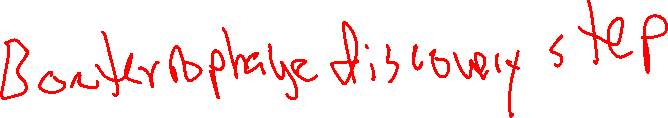 Bacteriophage discovery step